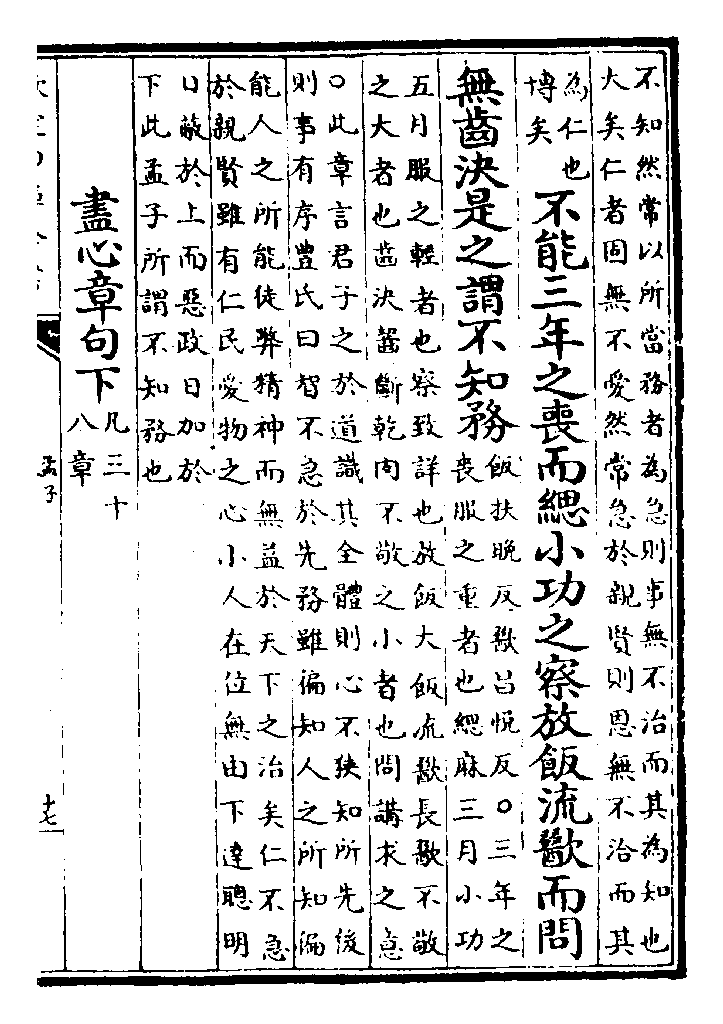 不知然常以所當務者為急則事無不治而其為知也
大矣仁者固無不愛然常急於親賢則恩無不洽而其
為仁也
博矣
不能三年之喪而緦小功之察放飯流歠而問
無齒決是之謂不知務
飯扶晚反歠昌悅反○三年之
喪服之重者也緦麻三月小功
五月服之輕者也察致詳也放飯大飯流歠長歠不敬
之大者也齒決齧斷乾肉不敬之小者也問講求之意
○此章言君子之於道識其全體則心不狹知所先後
則事有序豐氏曰智不急於先務雖徧知人之所知徧
能人之所能徒弊精神而無益於天下之治矣仁不急
於親賢雖有仁民愛物之心小人在位無由下達聰明
日蔽於上而惡政日加於
下此孟子所謂不知務也
盡心章句下
凡三十
八章
孟子
十七